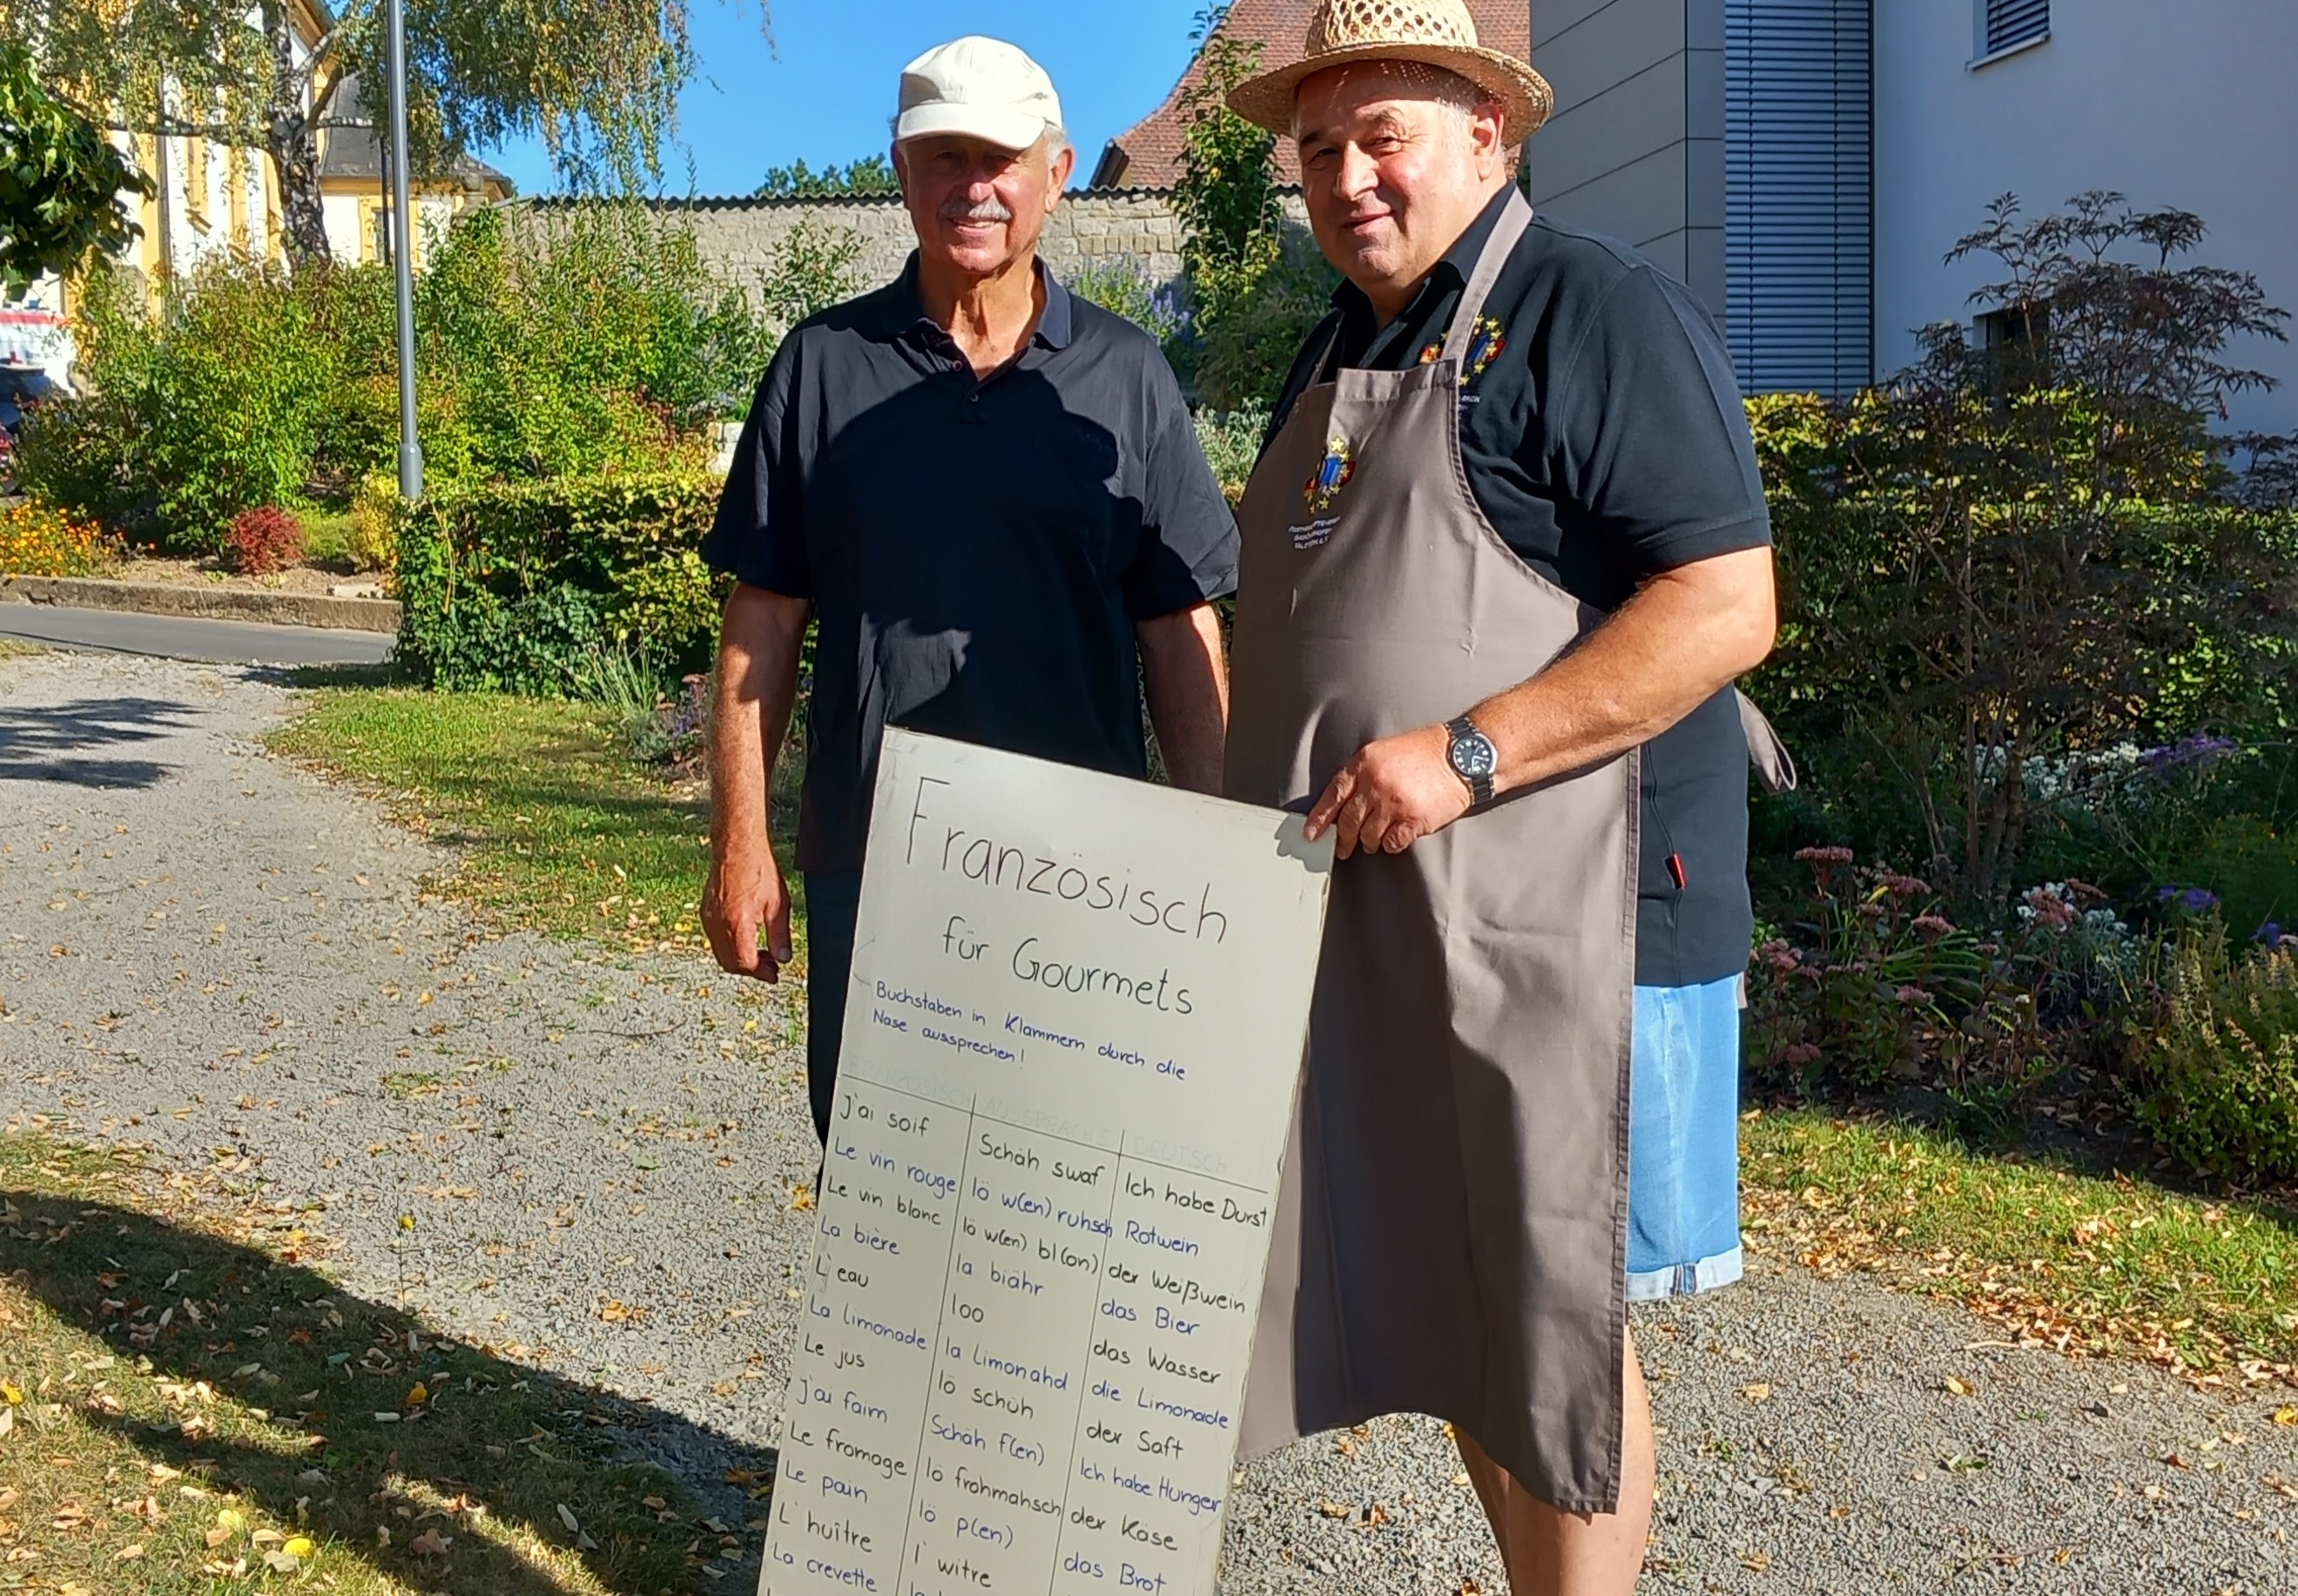 Französisch
für Gourmets
Buchstaben in Klammern durch die
Nase aussprechen!
FRANZÖSISCH AUSSPRACHE DEUTSCH
J'ai soif Schäh swaf Ich habe Durst
Le vin rouge lö w(en) ruhsch Rotwein
Le vin blanc lö w(en) bl(on) der Weißwein
La bière la biähr das Bier
L'eau loo das Wasser
La limonade la Limonahd die Limonade
Le jus lö schüh der Saft
J'ai faim Schäh f(en) Ich habe Hunger
Le fromage lö frohmahsch der Käse
Le pain lö p(en) das Brot
L'huître l'witre
La crevette